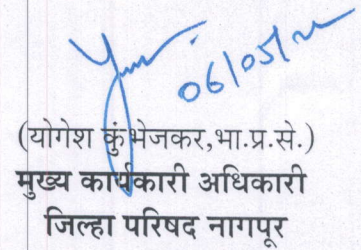 06/05/22
(योगेश कुंभेजकर,भा.प्र.से.)
मुख्य कार्यकारी अधिकारी
जिल्हा परिषद नागपूर